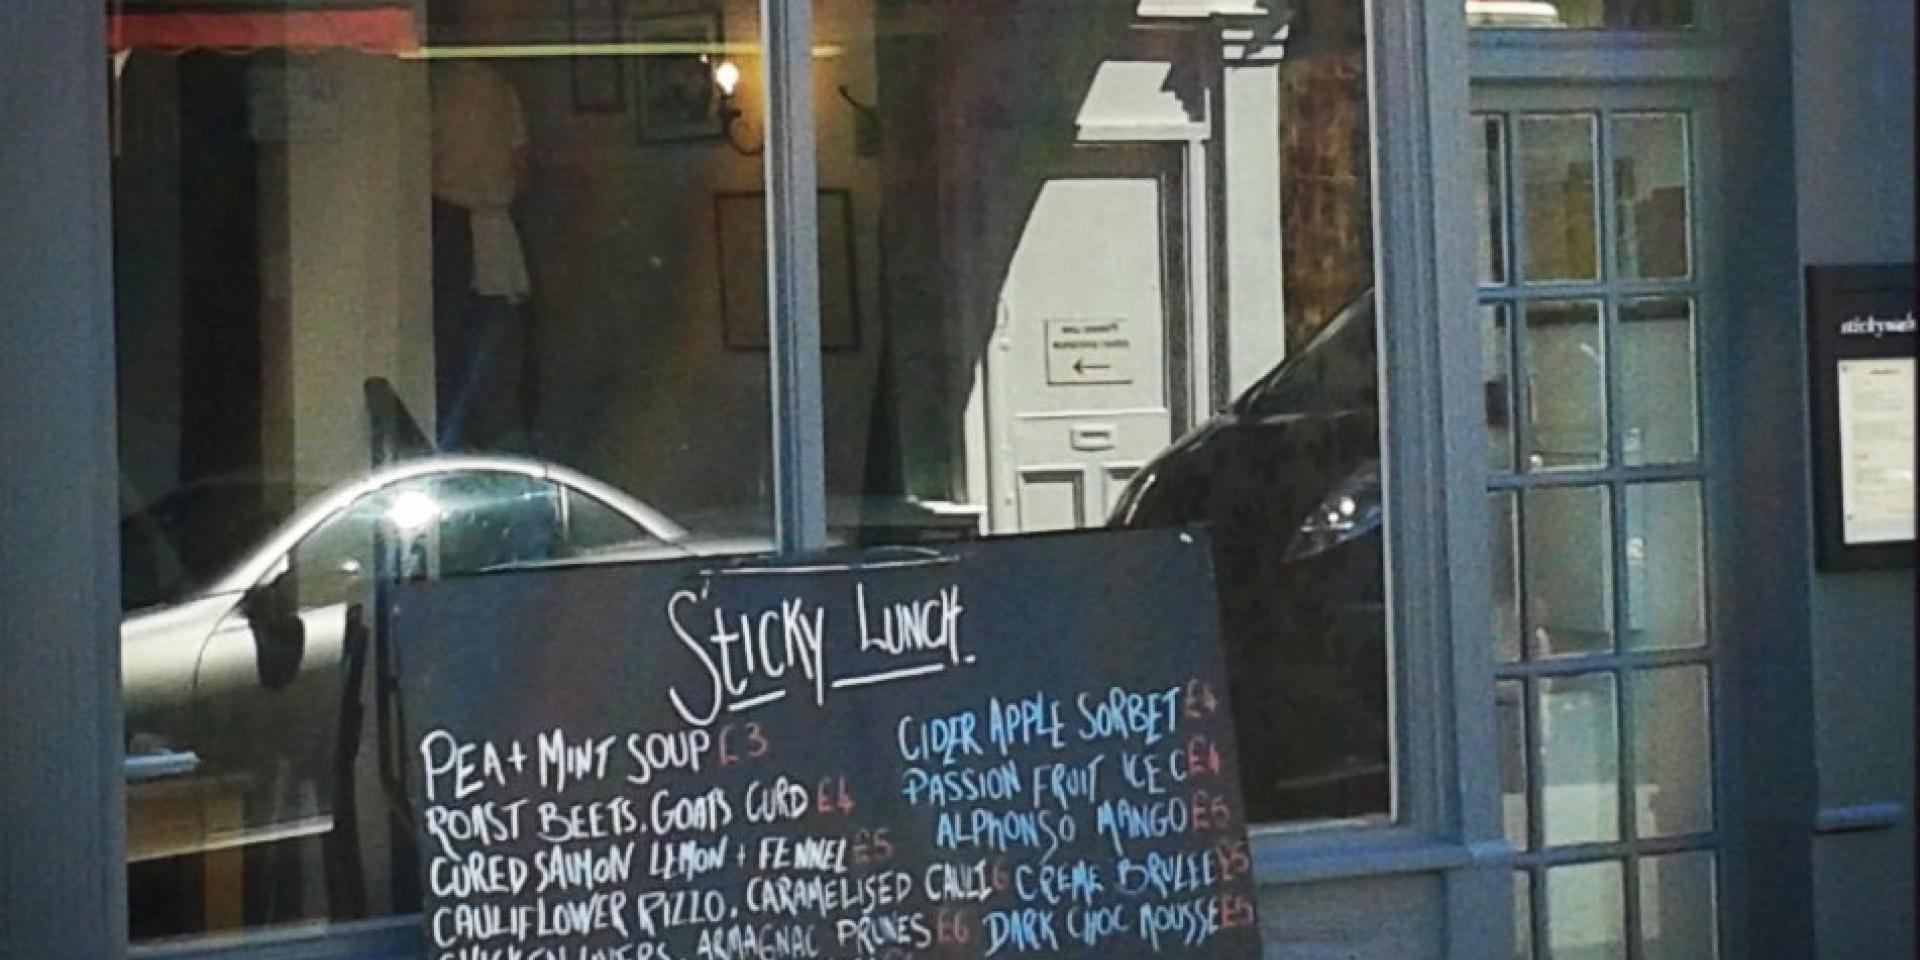 STICKY LUNCH.
PEA + MINT SOUP £3
ROAST BEETS. GOATS CURD £4
CURED SALMON LEMON + FENNEL £5
CAULIFLOWER RIZZO. CARAMELISED CAULI 6
CHICKEN LIVERS. ARMAGNAC PRUNES £6
CIDER APPLE SORBET £4
PASSION FRUIT ICE C £4
ALPHONSO MANGO £5
CREME BRULEE £5
DARK CHOC MOUSSE £5